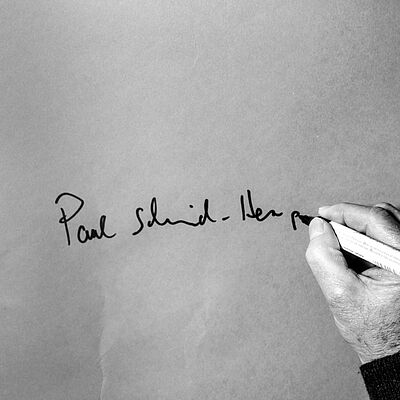 Paul Schmid-Hemp